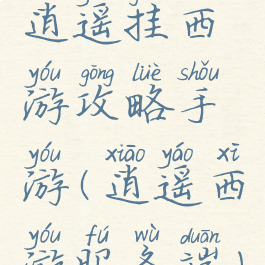 逍遥挂西
yóu gōng lüè shǒu
游攻略手
yóu xiāo yáo xī
游(逍遥西
yóu fú wù duān
游服务端)